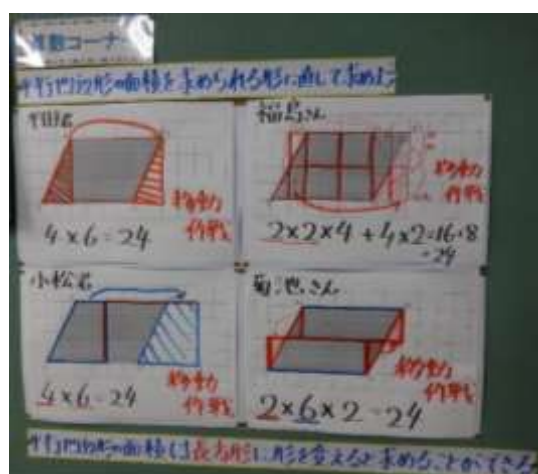 算数コーナー
平行四辺形の面積を求められる形に直して求めた
移動
作戦
4×6=24
移動
作戦
2×2×4+4×2=16+8
=24
小松君
移動
作戦
4×6=24
菊池さん
移動
作戦
2×6×2=24
平行四辺形の面積は長方形に形を変えると求めることができる